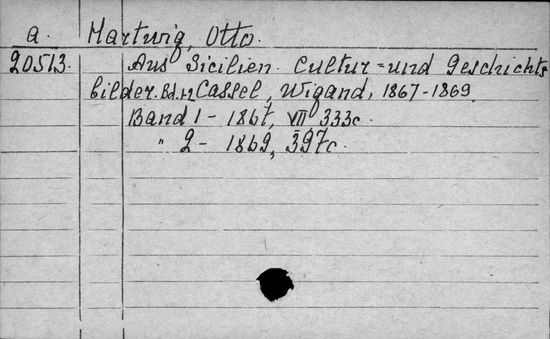 a. Hartwig, Otto.
20513. Aus Sicilien. Cultur-und Geschichts
bilder. Bd. 1-2 Cassel, Wigand, 1867-1869.
Band 1 - 1867, VIII 333c.
" 2 - 1869, 397c.